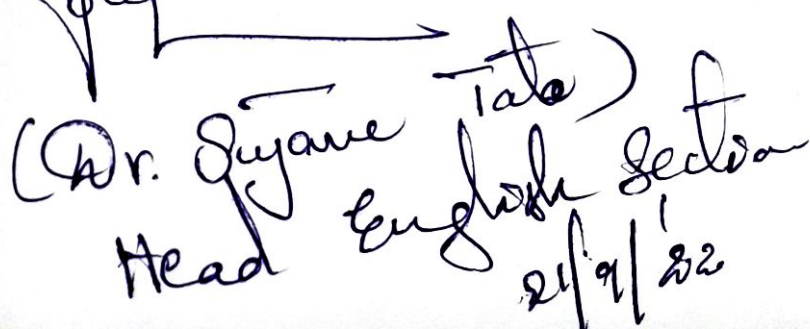 (Dr. Sujane Tate)
Head English Section
21/9/22